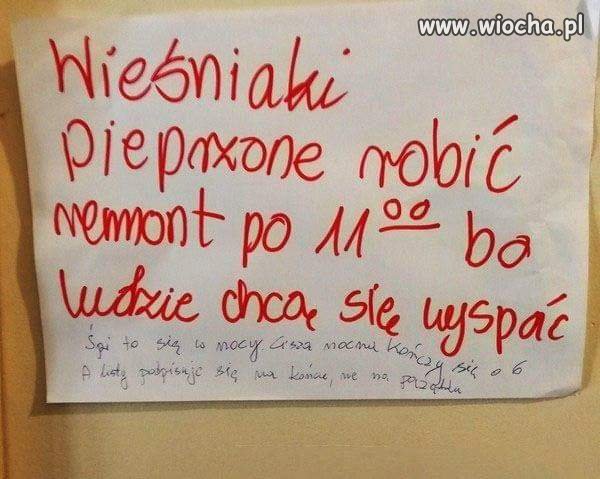 www.wiocha.pl
Wieśniaki
pieprzone robić
remont po 11⁰⁰ bo
ludzie chcą się wyspać
Śpi to się w nocy Cisza nocna kończy się o 6
A listy podpisuje się na końcu, nie na początku